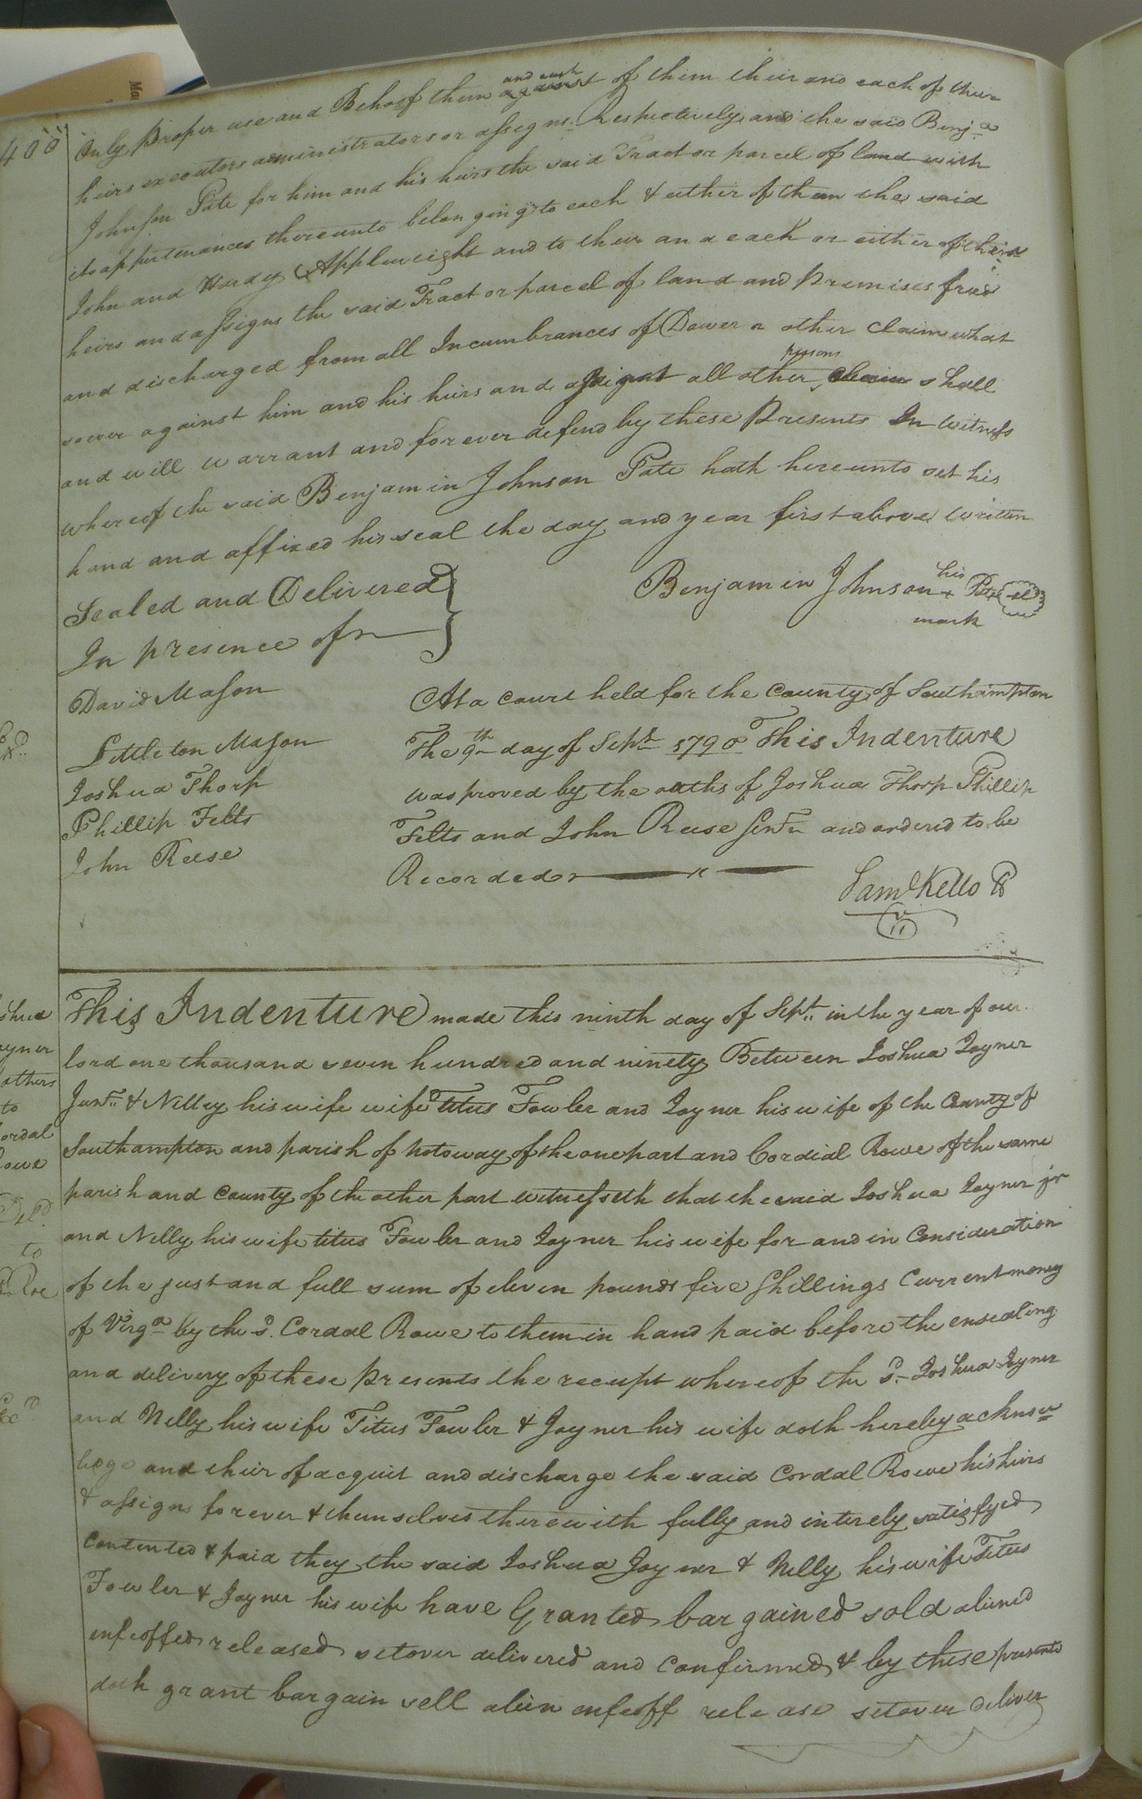 400
Only Proper use and Behoof them and each against of them their and each of their
heirs executors administrators or assigns Respectively and the said Benja
Johnson Pate for him and his heirs the said Tract or parcel of land with
its appurtenances thereunto belonging to each & either of them the said
John and Hardy Applewight and to their and each or either of their
heirs and assigns the said Tract or parcel of land and Premises free'd
and discharged from all Incumbrances of Dower or other Claim what
soever against him and his heirs and assigns all other persons claim shall
and will warrant and forever defend by these Presents In witness
whereof the said Benjamin Johnson Pate hath hereunto set his
hand and affixed his seal the day and year first above written
Sealed and Delivered
In presence of
Benjamin Johnson his + Pate
mark
David Mason
Littleton Mason
Joshua Thorp
Phillip Felts
John Reese
At a court held for the County of Southampton
The 9th day of Sept. 1790 This Indenture
was proved by the oaths of Joshua Thorp Phillip
Felts and John Reese and ordered to be
Recorded
Saml Kello
This Indenture made this ninth day of Sept. in the year of our
lord one thousand seven hundred and ninety Between Joshua Joyner
Junr. & Nelley his wife wife Titus Fowler and Joyner his wife of the County of
Southampton and parish of notoway of the one part and Cordial Rowe of the same
parish and County of the other part witnesseth that the said Joshua Joyner jr
and Nelly his wife titus Fowler and Joyner his wife for and in Consideration
of the just and full sum of eleven pounds five shillings Current money
of Virga by the sd. Cordal Rowe to them in hand paid before the ensealing
and delivery of these presents the receipt whereof the sd. Joshua Joyner
and Nelly his wife Titus Fowler & Joyner his wife doth hereby acknow
ledge and their of acquit and discharge the said Cordal Rowe his heirs
& assigns forever & themselves therewith fully and intirely satisfyed
contented & paid they the said Joshua Joyner & Nelly his wife Titus
Fowler & Joyner his wife have Granted bargained sold aliened
enfeoffed released setover delivered and confirmed & by these presents
doth grant bargain sell alien enfeoff release setover deliver